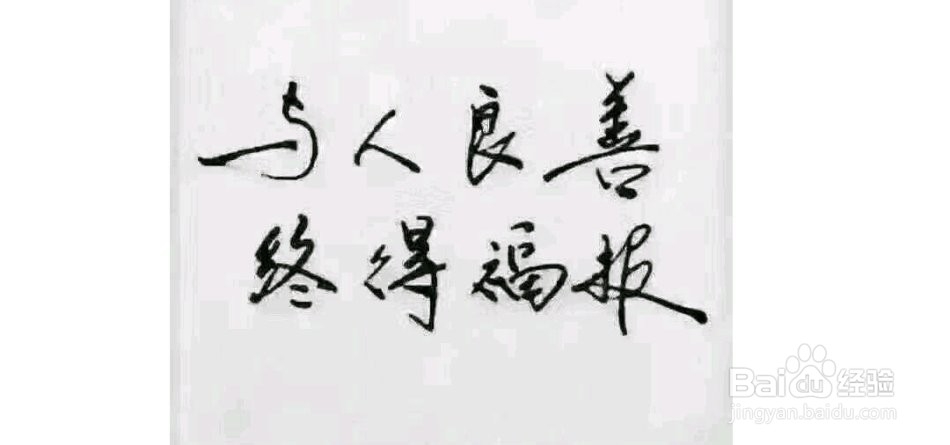 与人良善
终得福报
Baidu经验
jingyan.baidu.com